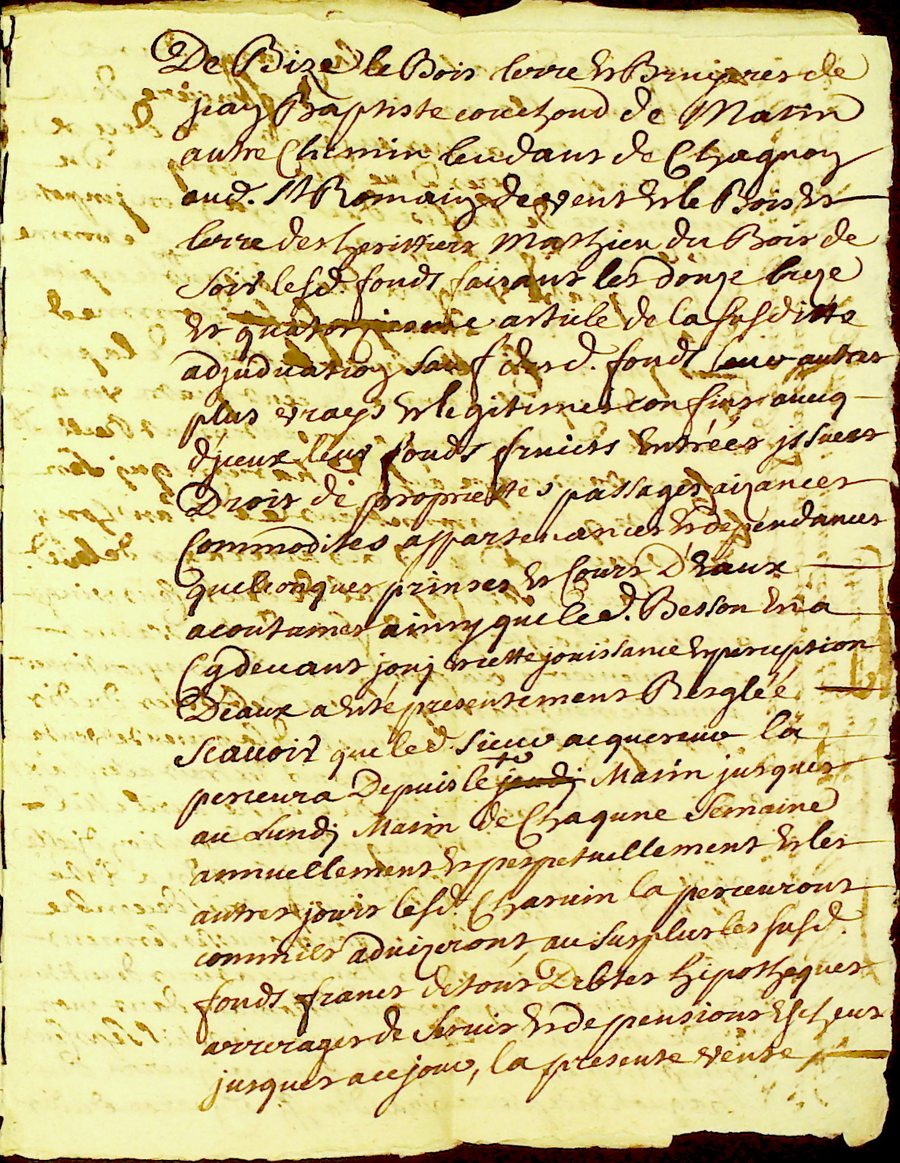 De Bize le Bois terre et Bruyeres de
jean Baptiste couchoud de Matin
autre Chemin tendant de Chagnon
aud. St Romain de vent et le Bois et
terre des heritiers Mathieu du Bois de
Soir lesd. fonds faisant les douze treze
et quatorzieme article de la susditte
adjudication sauf desd. fonds leurs autres
plus vrays et legitimes confins avecq
djceux leurs fonds fruicts Entrées jssues
Droit de proprietes passages aizances
Commodites appartenances et dependances
quelconques prinses et Cours D'Eaux
acoutumes ainsy que led. Besson En a
Cydevant jouj et cette jouissance et perception
D'eaux a Eté presentement Reglée
Scavoir que led. Sieur acquereur la
percevra Depuis le jeudj Matin jusques
au Lundj Matin de Chaqune Semaine
annuellement et perpetuellement et les
autres jours lesd. Charvin la percevront
comm'ils advizeront, au surplus les susd.
fonds francs de tous Debtes hipotheques
arrerages de Servis et de pensions Escheus
jusques a ce jour, la presente vente